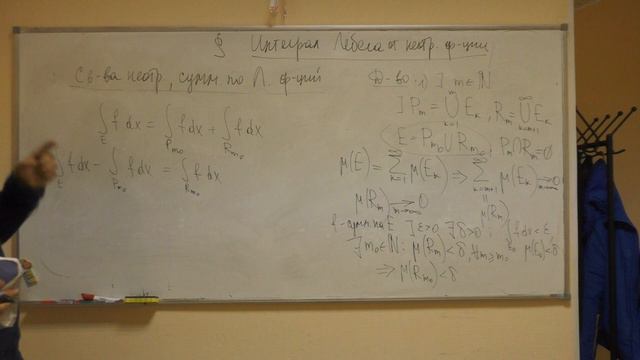 § Интеграл Лебега от неогр. ф-ции
Св-ва неогр., сумм. по Л. ф-ций
∫_E f dx = ∫_{P_{m_0}} f dx + ∫_{R_{m_0}} f dx
∫_E f dx - ∫_{P_{m_0}} f dx = ∫_{R_{m_0}} f dx
Д-во: 1) ∃ m ∈ ℕ
∃ P_m = ⋃_{k=1}^m E_k, R_m = ⋃_{k=m+1}^∞ E_k
E = P_{m_0} ∪ R_{m_0}, P_m ∩ R_m = ∅
μ(E) = ∑_{k=1}^∞ μ(E_k) ⇒ ∑_{k=m+1}^∞ μ(E_k) →_{m→∞} 0
= μ(R_m)
μ(R_m) →_{m→∞} 0
f - сумм. на E ∃ ε>0 ∃ δ>0 : ∫_{E_0} f dx < ε, μ(E_0) < δ
∃ m_0 ∈ ℕ : μ(R_m) < δ, ∀ m ≥ m_0
⇒ μ(R_{m_0}) < δ